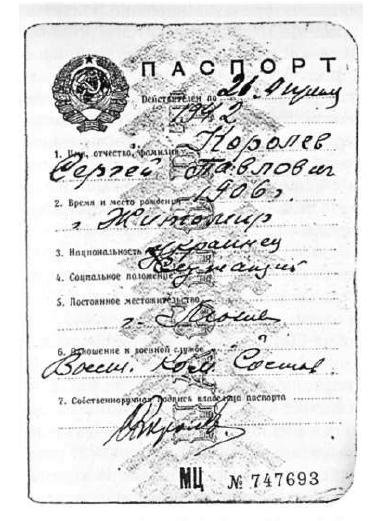 ПАСПОРТ
Действителен по 26. Апреля
1942
Королев
1. Имя, отчество, фамилия
Сергей Павлович
1906 г.
2. Время и место рождения
г Житомир
3. Национальность украинец
4. Социальное положение Служащий
5. Постоянное местожительство
г.
6. Отношение к военной службе
Состав
7. Собственноручная подпись владельца паспорта
МЦ № 747693